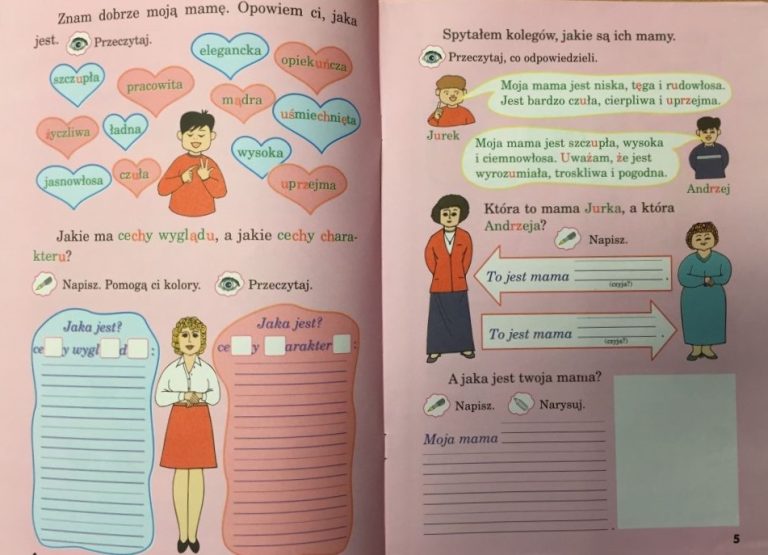 Znam dobrze moją mamę. Opowiem ci, jaka
jest. Przeczytaj.
szczupła
pracowita
elegancka
opiekuńcza
mądra
uśmiechnięta
życzliwa
ładna
wysoka
jasnowłosa
czuła
uprzejma
Jakie ma cechy wyglądu, a jakie cechy chara-
kteru?
Napisz. Pomogą ci kolory. Przeczytaj.
Jaka jest?
ce y wygl d :
Jaka jest?
ce y arakter :
Spytałem kolegów, jakie są ich mamy.
Przeczytaj, co odpowiedzieli.
Moja mama jest niska, tęga i rudowłosa.
Jest bardzo czuła, cierpliwa i uprzejma.
Jurek
Moja mama jest szczupła, wysoka
i ciemnowłosa. Uważam, że jest
wyrozumiała, troskliwa i pogodna.
Andrzej
Która to mama Jurka, a która
Andrzeja?
Napisz.
To jest mama .
(czyja?)
To jest mama .
(czyja?)
A jaka jest twoja mama?
Napisz. Narysuj.
Moja mama
.
5